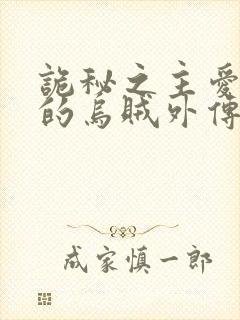 詭秘之主愛
的烏賊外傳
成家慎一郎